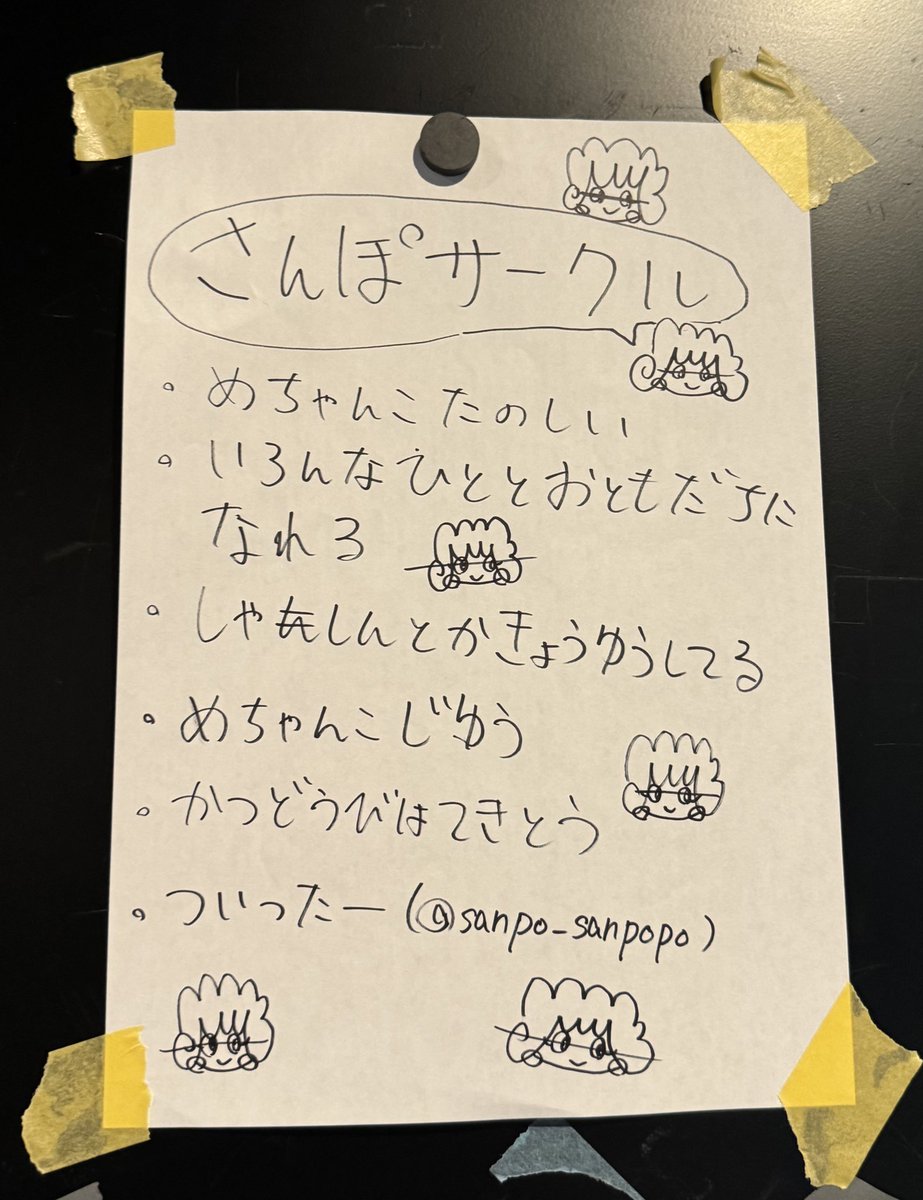 さんぽサークル
・めちゃんこたのしい
・いろんなひととおともだちに
なれる
・しゃしんとかきょうゆうしてる
・めちゃんこじゆう
・かつどうびはてきとう
・ついったー(@sanpo_sanpopo)